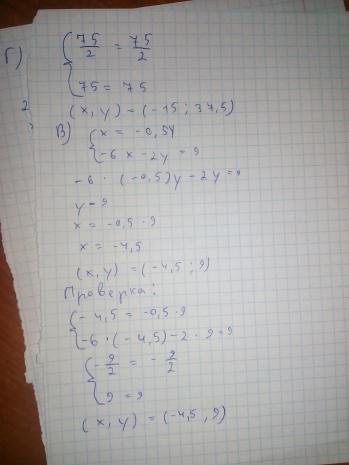 Г)
{ 75/2 = 75/2
75 = 75
(x, y) = (-15; 37,5)
В)
{ x = -0,5y
-6x - 2y = 9
-6 · (-0,5)y - 2y = 9
y = 9
x = -0,5 · 9
x = -4,5
(x, y) = (-4,5; 9)
Проверка:
{ -4,5 = -0,5 · 9
-6 · (-4,5) - 2 · 9 = 9
{ -9/2 = -9/2
9 = 9
(x, y) = (-4,5, 9)